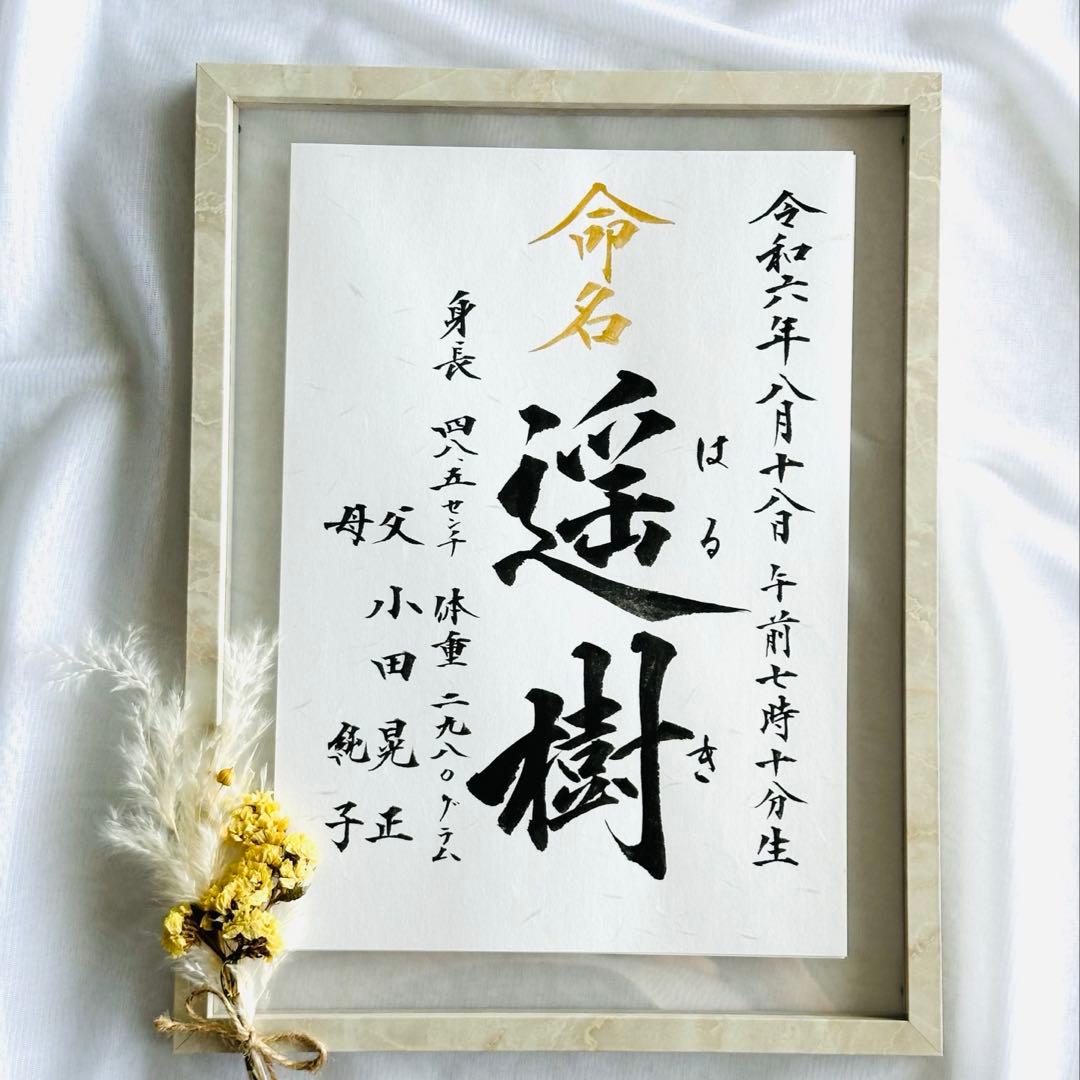 令和六年八月十八日 午前七時十分生
はるき
命名
遥樹
身長 四八.五センチ 体重 二九八〇グラム
父 小田 晃正
母 純子